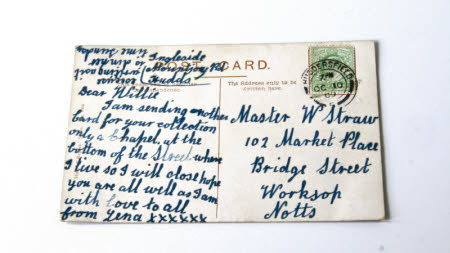 Ingleside
POST CARD.
Hudds
The Address only to be
written here.
HUDDERSFIELD
OC 10
09
Dear Willie
I am sending another
card for your collection
only a Chapel, at the
bottom of the Street where
I live so I will close hope
you are all well as I am
with love to all
from Lena xxxxxx
Master W Straw
102 Market Place
Bridge Street
Worksop
Notts